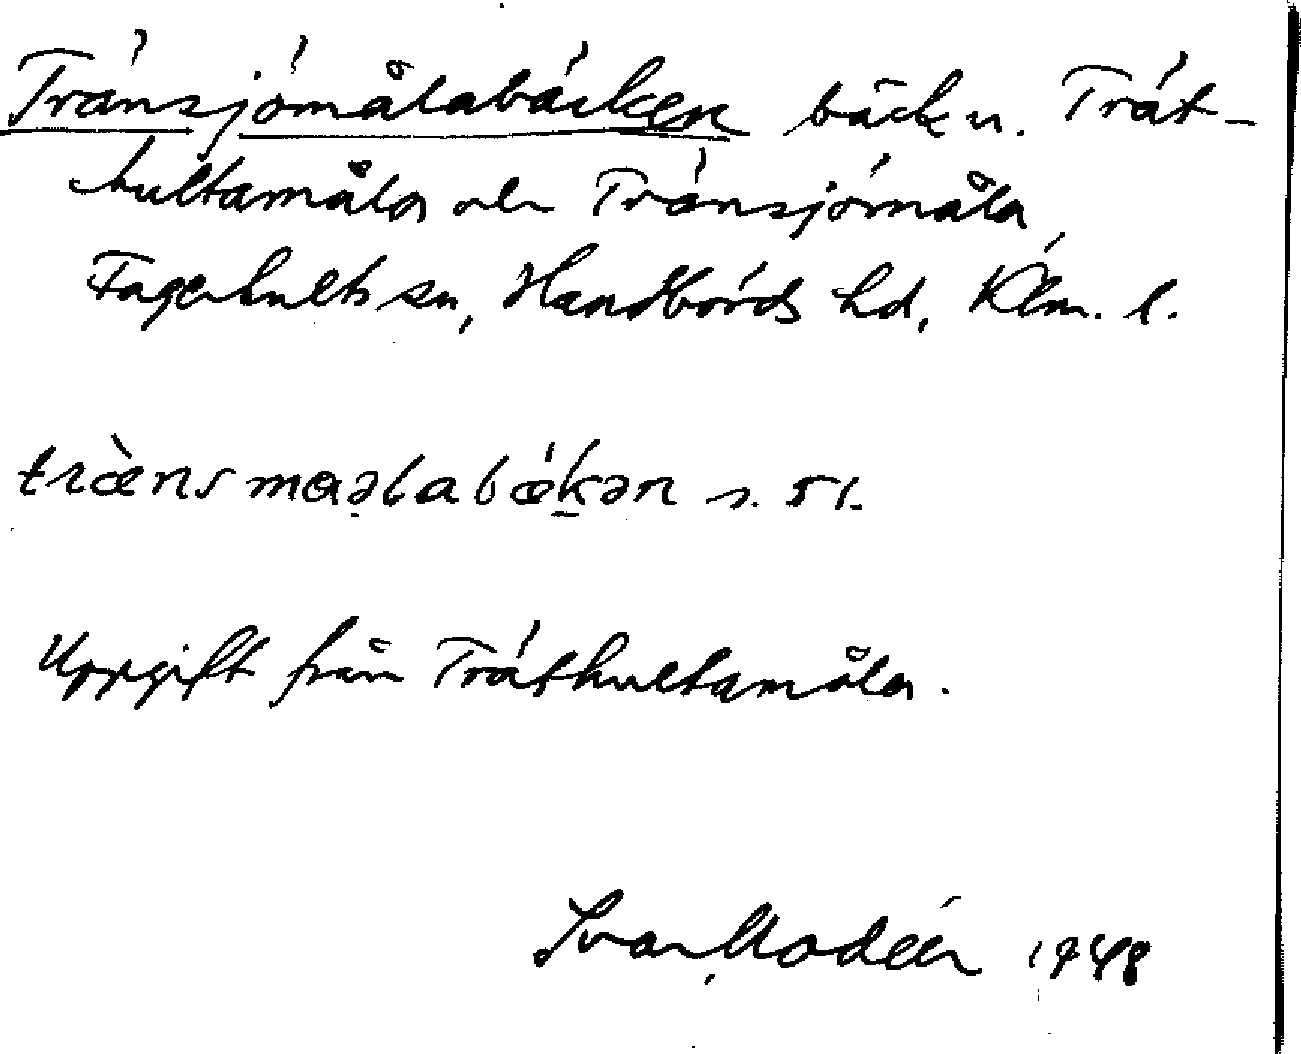 Tränsjömålabäcken bäck n. Trät-
hultamåla och Tränsjömåla,
Fagerhults sn, Handbörds hd, Klm. l.
træ̀nsmaəlabǽkən s. st.
Uppgift från Träthultamåla.
Ivar Modéer 1948